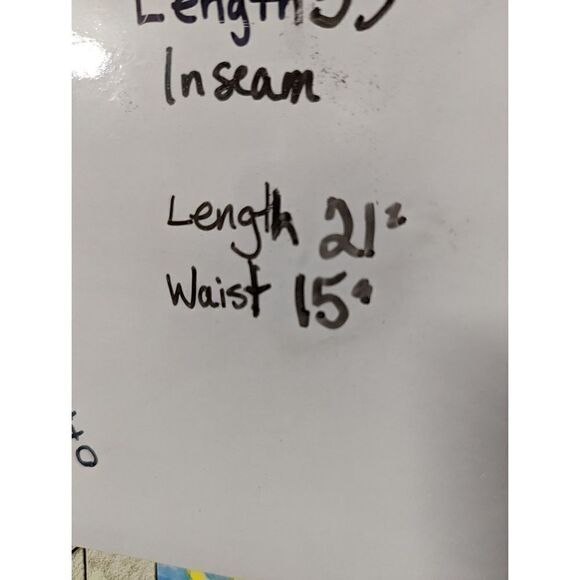 Length
Inseam
Length 21"
Waist 15"